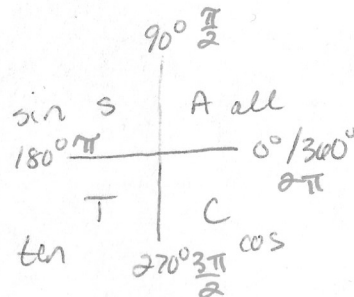 90° π/2
sin S A all
180° π 0°/360°
2π
T C
ten 270° 3π/2 cos